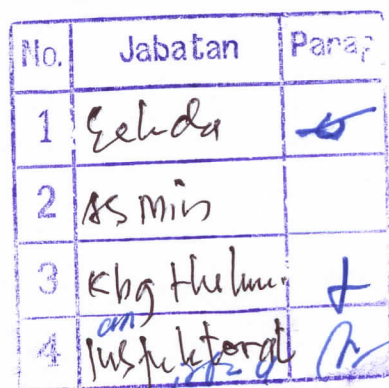 No. Jabatan Paraf
1 Sekda
2 Asmin
3 Kbg Hukum.
an
4 Inspektorat